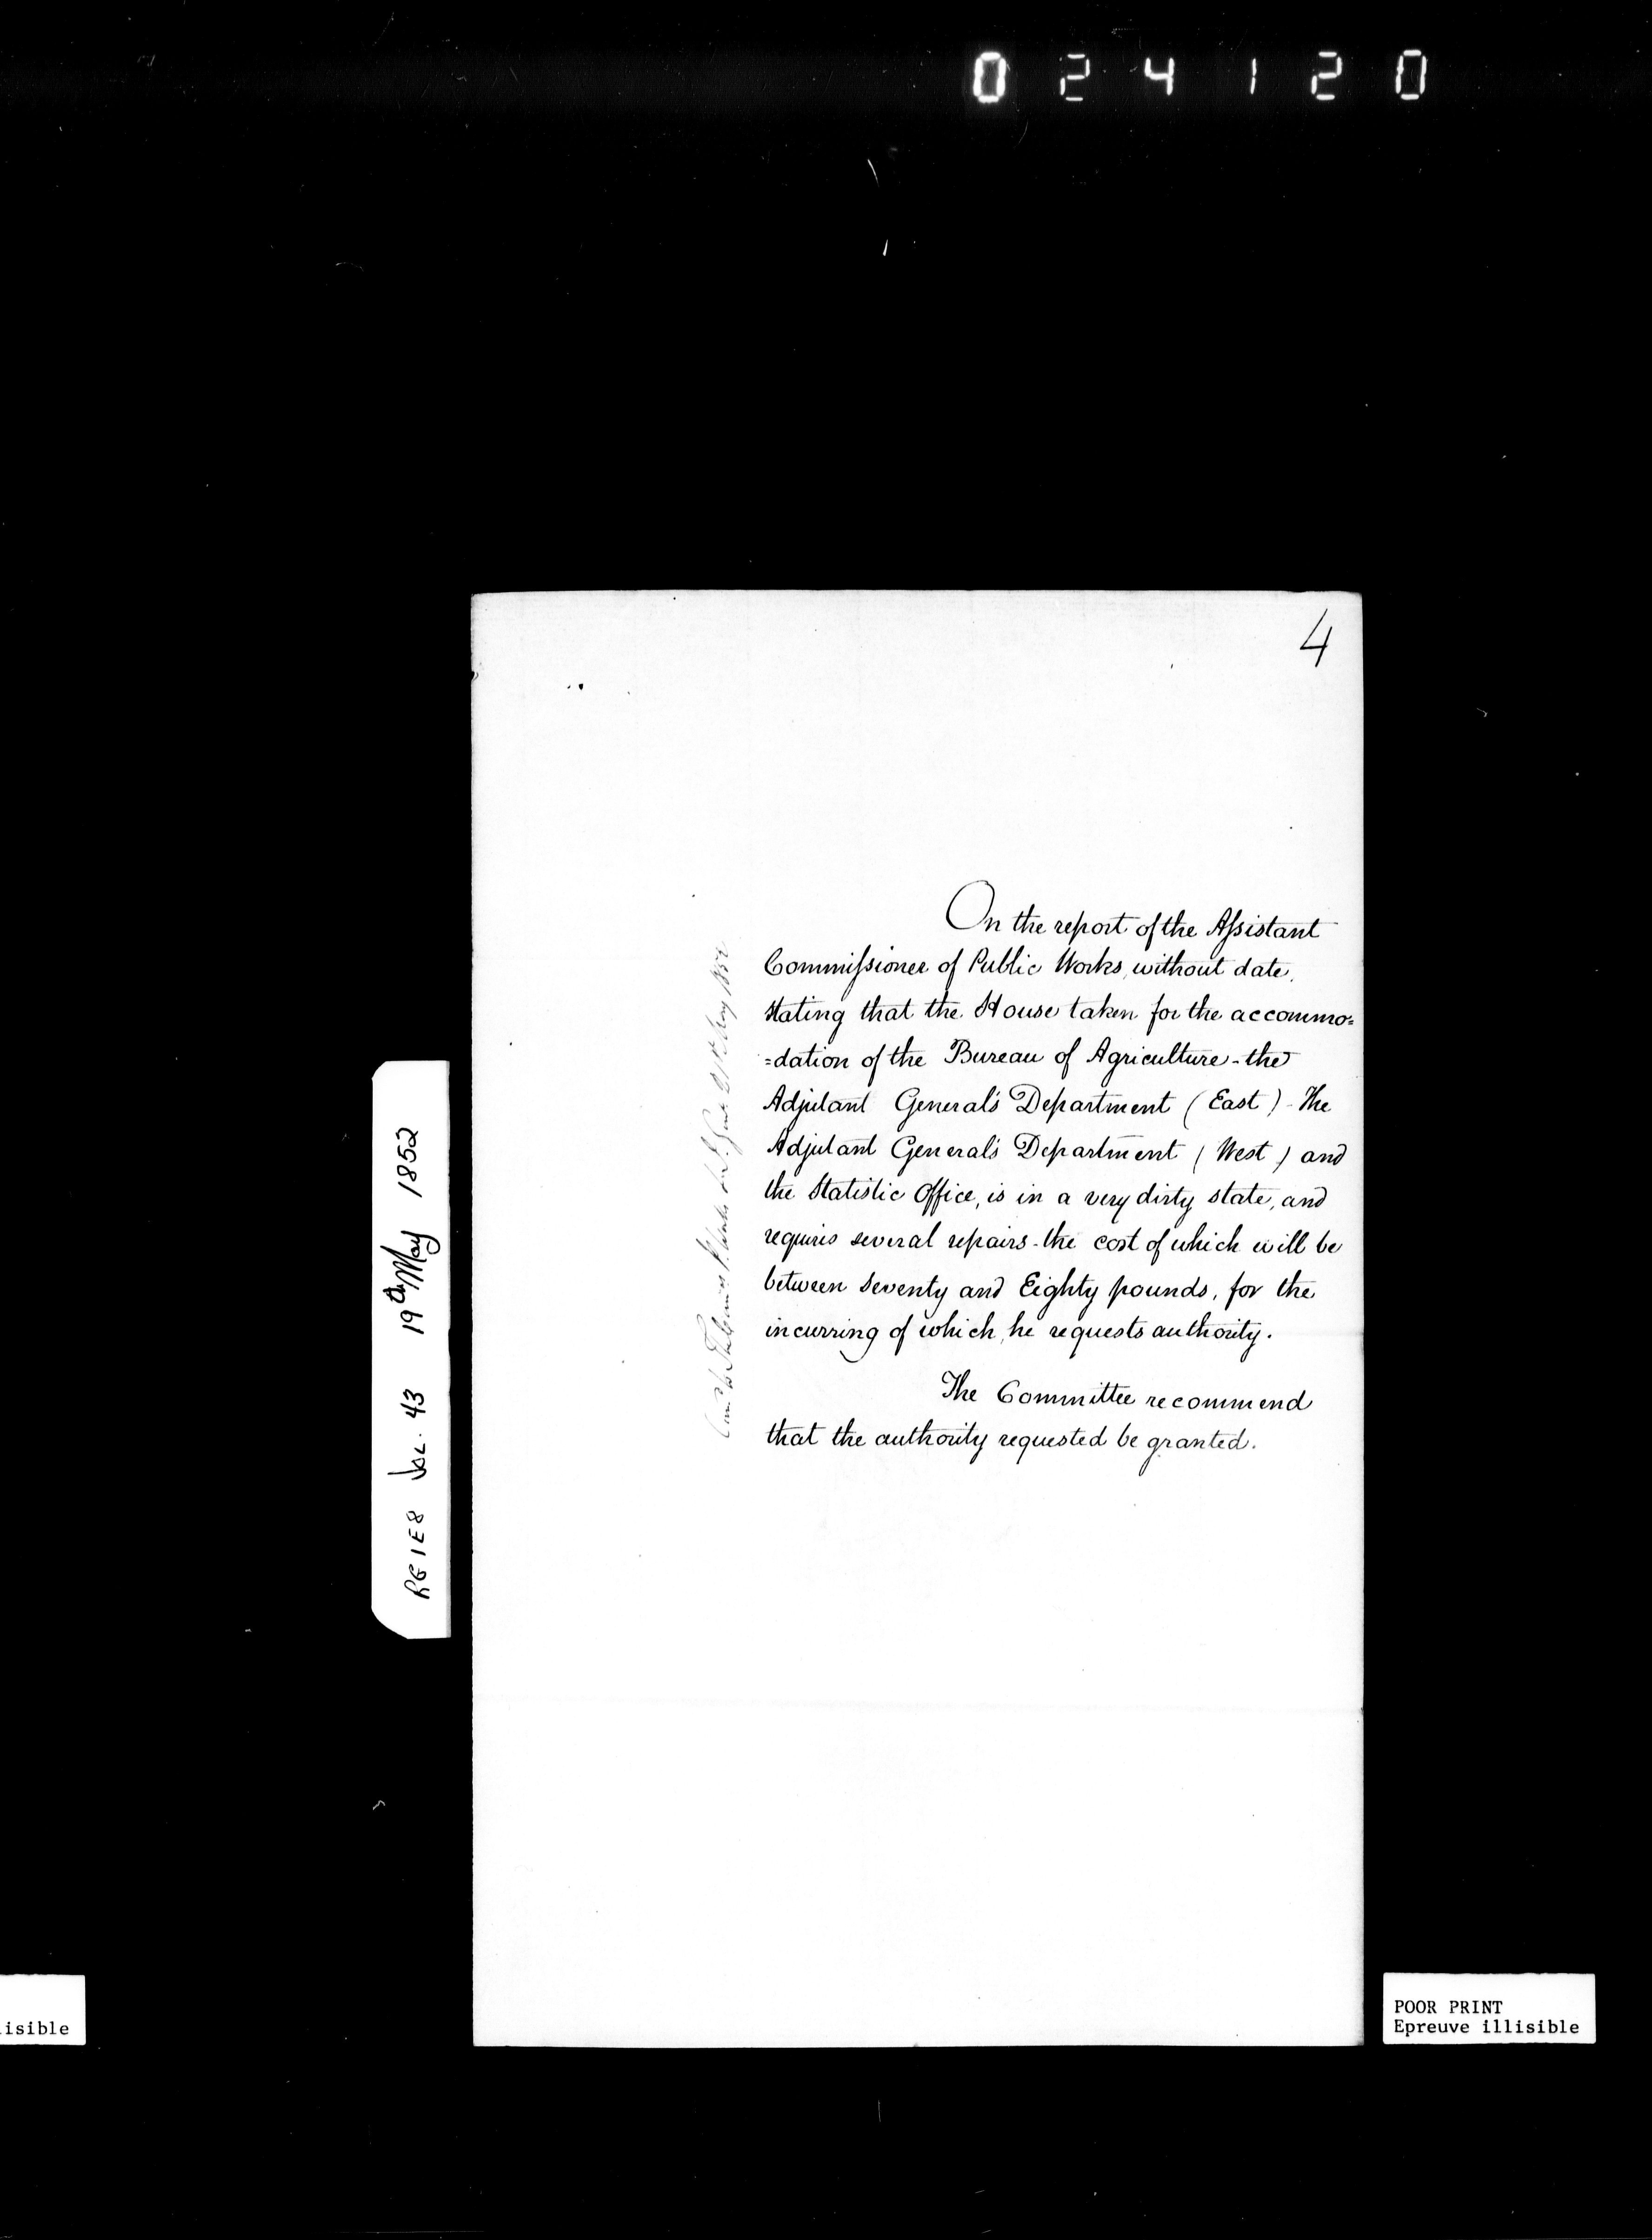 024120
4
On the report of the Assistant
Commissioner of Public Works, without date,
stating that the House taken for the accommo=
=dation of the Bureau of Agriculture - the
Adjutant General's Department (East) - The
Adjutant General's Department (West) and
the Statistic Office, is in a very dirty state, and
requires several repairs - the cost of which will be
between Seventy and Eighty pounds, for the
incurring of which, he requests authority.
The Committee recommend
that the authority requested be granted.
May 1852
RG 1 E8 VOL. 43 19th May 1852
isible
POOR PRINT
Epreuve illisible